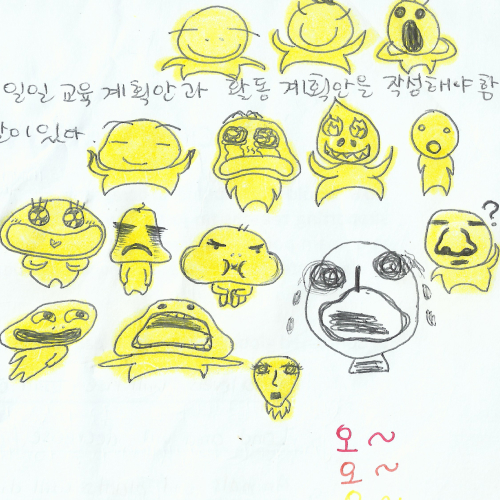 일일 교육 계획안과 활동 계획안을 작성해야 함
이 있다.
?
오~
오~
오~